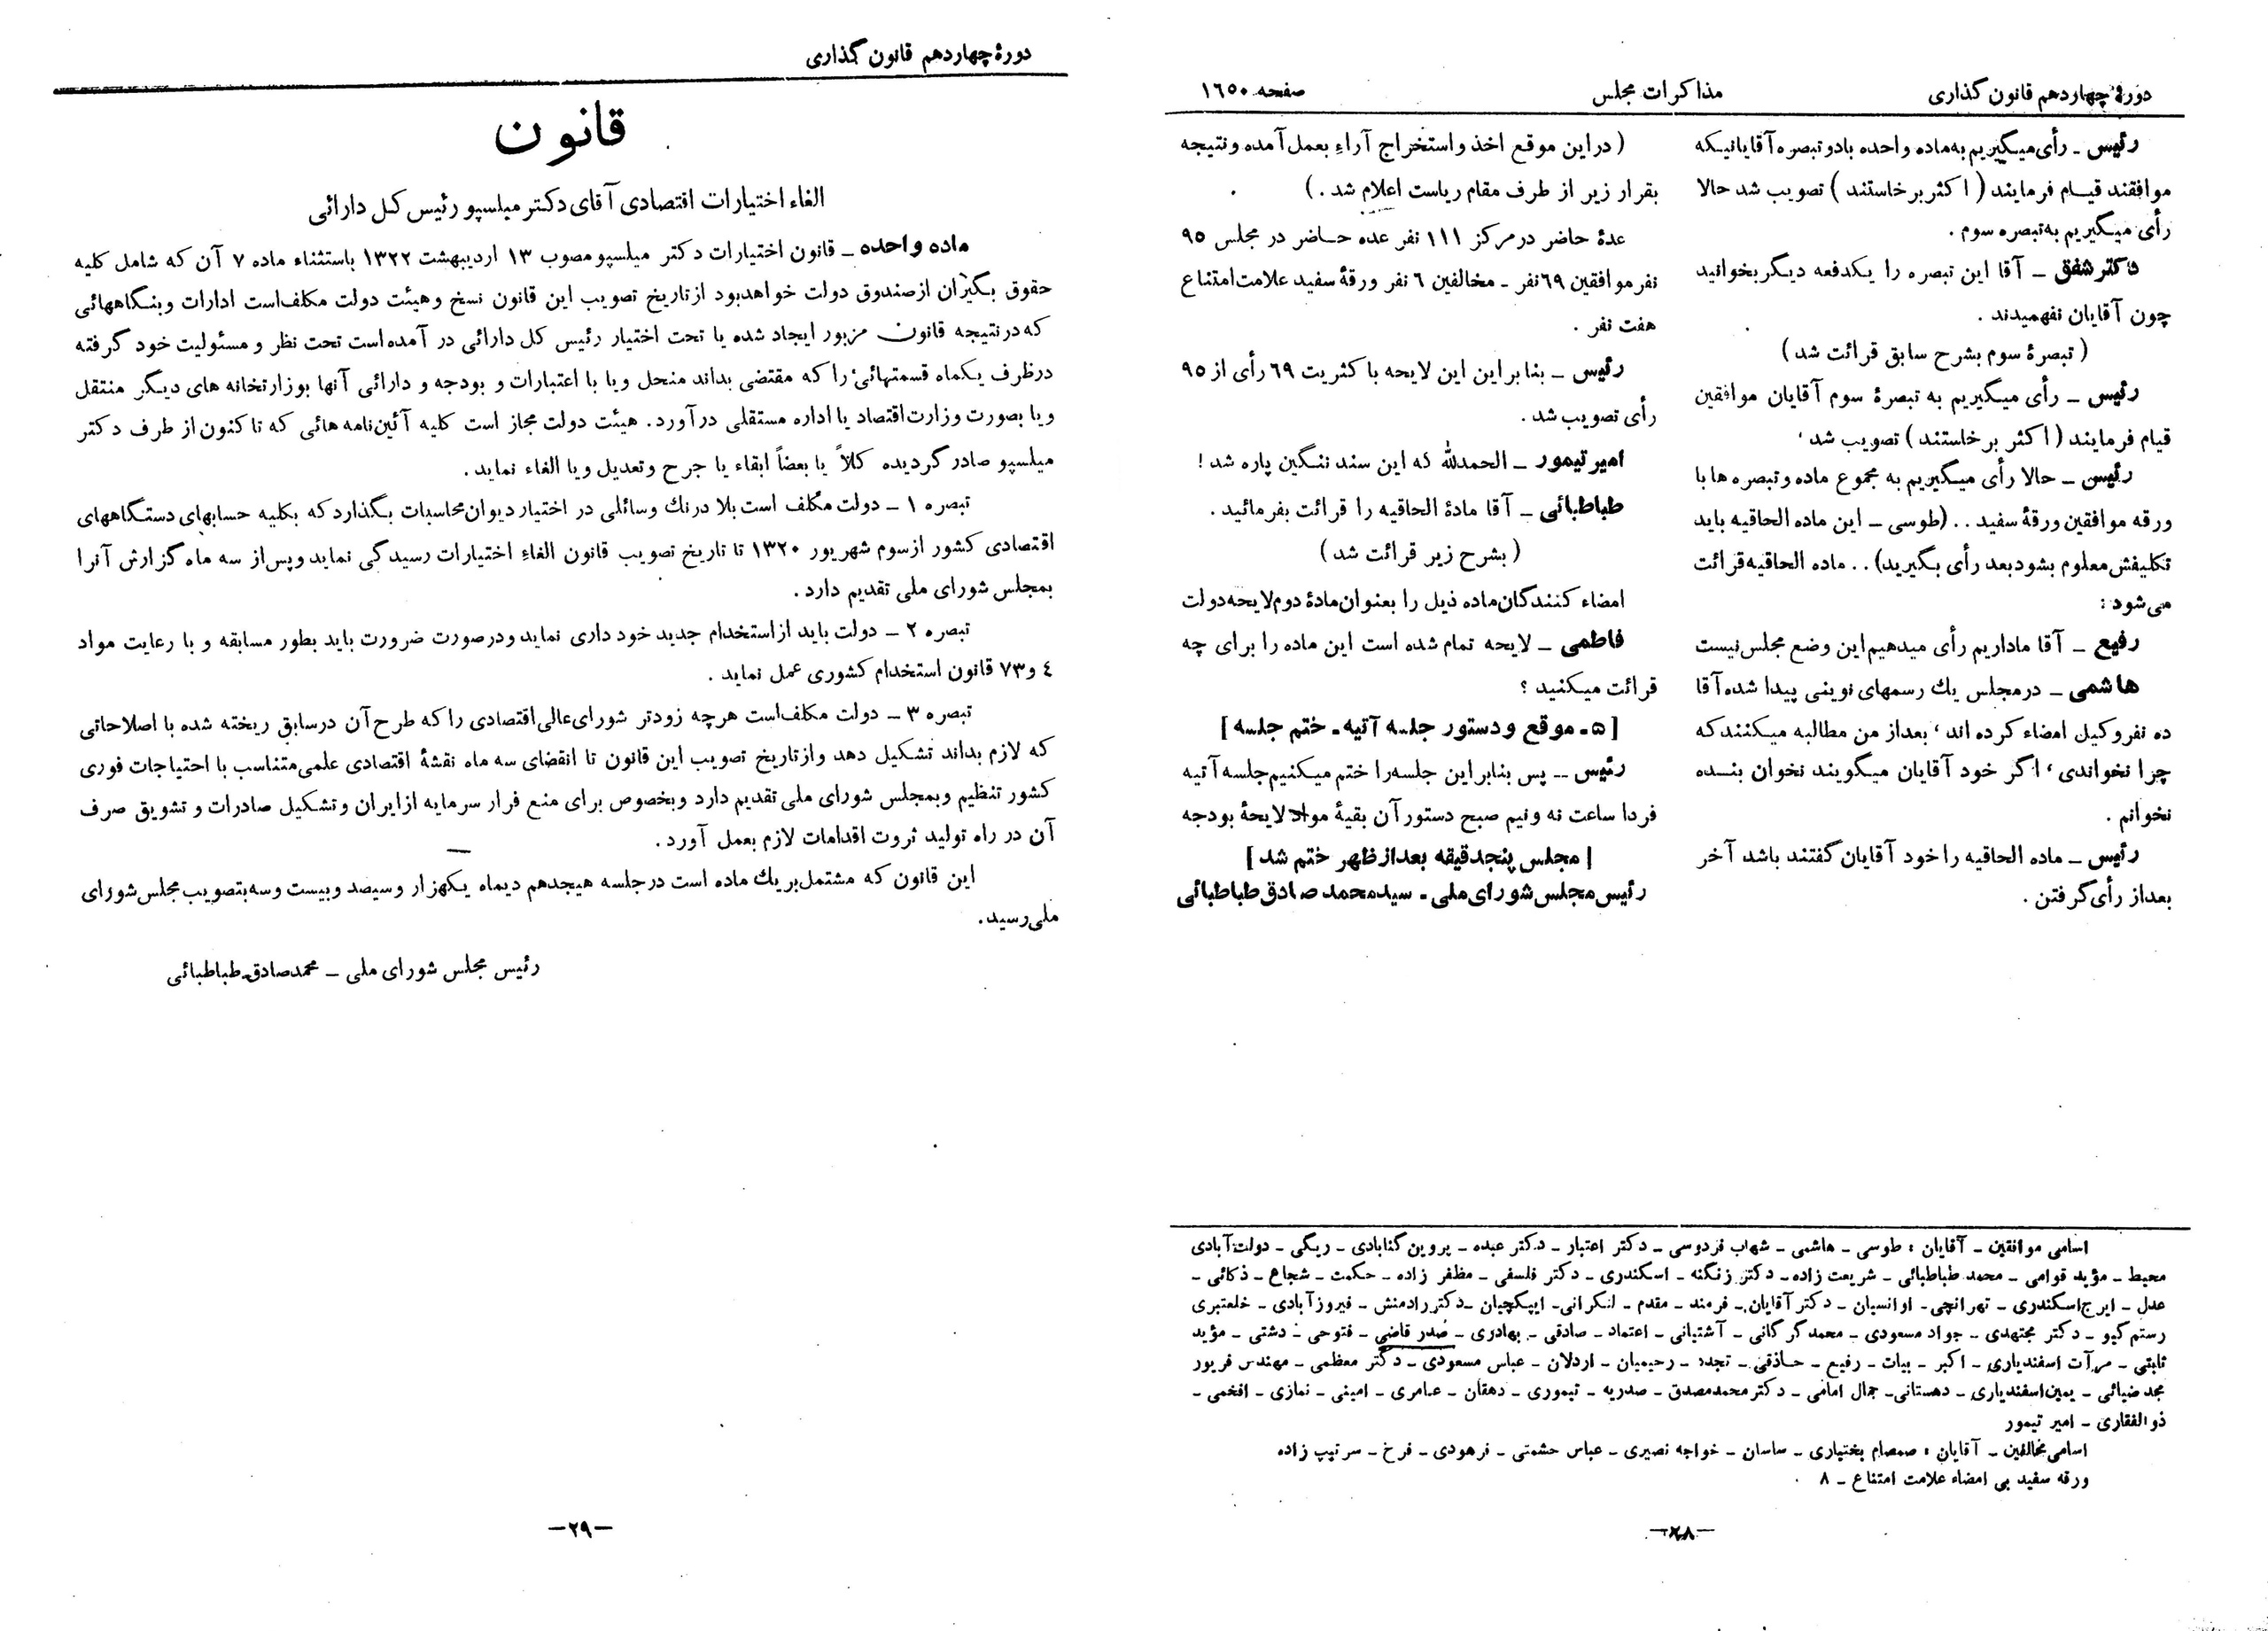 دورهٔ چهاردهم قانون گذاری
مذاکرات مجلس
صفحه ۱۶۵۰
رئیس ـ رأی میگیریم به ماده واحده بادو تبصره آقایانیکه
موافقند قیام فرمایند (اکثر برخاستند) تصویب شد حالا
رأی میگیریم به تبصره سوم .
دکتر شفق ـ آقا این تبصره را یکدفعه دیگر بخوانید
چون آقایان نفهمیدند .
(تبصرهٔ سوم بشرح سابق قرائت شد)
رئیس ـ رأی میگیریم به تبصرهٔ سوم آقایان موافقین
قیام فرمایند (اکثر برخاستند) تصویب شد .
رئیس ـ حالا رأی میگیریم به مجموع ماده و تبصره ها با
ورقه موافقین ورقهٔ سفید . . (طوسی ـ این ماده الحاقیه باید
تکلیفش معلوم بشود بعد رأی بگیرید) . . ماده الحاقیه قرائت
می‌شود :
رفیع ـ آقا ماداریم رأی میدهیم این وضع مجلس نیست
هاشمی ـ درمجلس یك رسمهای نوینی پیدا شده آقا
ده نفروکیل امضاء کرده اند ، بعداز من مطالبه میکنند که
چرا نخواندی ، اگر خود آقایان میگویند نخوان بنده
نخوانم .
رئیس ـ ماده الحاقیه را خود آقایان گفتند باشد آخر
بعداز رأی گرفتن .
(دراین موقع اخذ و استخراج آراء بعمل آمده و نتیجه
بقرار زیر از طرف مقام ریاست اعلام شد .)
عدهٔ حاضر درمرکز ۱۱۱ نفر عده حاضر در مجلس ۹۵
نفر موافقین ۶۹ نفر ـ مخالفین ۶ نفر ورقهٔ سفید علامت امتناع
هفت نفر .
رئیس ـ بنابراین این لایحه با کثریت ۶۹ رأی از ۹۵
رأی تصویب شد .
امیر تیمور ـ الحمدلله که این سند ننگین پاره شد !
طباطبائی ـ آقا مادهٔ الحاقیه را قرائت بفرمائید .
(بشرح زیر قرائت شد)
امضاء کنندگان ماده ذیل را بعنوان مادهٔ دوم لایحه دولت
فاطمی ـ لایحه تمام شده است این ماده را برای چه
قرائت میکنید ؟
[۵ـ موقع و دستور جلسه آتیه ـ ختم جلسه]
رئیس ــ پس بنابراین جلسه را ختم میکنیم جلسه آتیه
فردا ساعت نه ونیم صبح دستور آن بقیهٔ مواد لایحهٔ بودجه
[مجلس پنجدقیقه بعدازظهر ختم شد]
رئیس مجلس شورای ملی ـ سیدمحمد صادق طباطبائی
اسامی موافقین ـ آقایان : طوسی ـ هاشمی ـ شهاب فردوسی ـ دکتر اعتبار ـ دکتر عبده ـ پروین گنابادی ـ ریگی ـ دولت آبادی
محیط ـ مؤید قوامی ـ محمد طباطبائی ـ شریعت زاده ـ دکتر زنگنه ـ اسکندری ـ دکتر فلسفی ـ مظفر زاده ـ حکمت ـ شجاع ـ ذکائی ـ
عدل ـ ایرج اسکندری ـ تهرانچی ـ اوانسیان ـ دکتر آقایان ـ فرمند ـ مقدم ـ لنکرانی ـ ایپکچیان ـ دکتر رادمنش ـ فیروزآبادی ـ خلعتبری
رستم گیو ـ دکتر مجتهدی ـ جواد مسعودی ـ محمد گرگانی ـ آشتیانی ـ اعتماد ـ صادقی ـ بهادری ـ صدر قاضی ـ فتوحی ـ دشتی ـ مؤید
ثابتی ـ مرآت اسفندیاری ـ اکبر ـ بیات ـ رفیع ـ حاذقی ـ تجدد ـ رحیمیان ـ اردلان ـ عباس مسعودی ـ دکتر معظمی ـ مهندس فریور
مجد ضیائی ـ یمین اسفندیاری ـ دهستانی ـ جمال امامی ـ دکتر محمد مصدق ـ صدریه ـ تیموری ـ دهقان ـ عامری ـ امینی ـ نمازی ـ افخمی ـ
ذوالفقاری ـ امیر تیمور
اسامی مخالفین ـ آقایان : صمصام بختیاری ـ ساسان ـ خواجه نصیری ـ عباس حشمتی ـ فرهودی ـ فرخ ـ سرتیپ زاده
ورقه سفید بی امضاء علامت امتناع ـ ۸
—۲۸—
دورهٔ چهاردهم قانون گذاری
قانون
الغاء اختیارات اقتصادی آقای دکتر میلسپو رئیس کل دارائی
ماده واحده ـ قانون اختیارات دکتر میلسپو مصوب ۱۳ اردیبهشت ۱۳۲۲ باستثناء ماده ۷ آن که شامل کلیه
حقوق بگیران از صندوق دولت خواهد بود از تاریخ تصویب این قانون نسخ و هیئت دولت مکلف است ادارات و بنگاههائی
که درنتیجه قانون مزبور ایجاد شده یا تحت اختیار رئیس کل دارائی در آمده است تحت نظر و مسئولیت خود گرفته
درظرف یکماه قسمتهائی را که مقتضی بداند منحل ویا با اعتبارات و بودجه و دارائی آنها بوزارتخانه های دیگر منتقل
ویا بصورت وزارت اقتصاد یا اداره مستقلی درآورد. هیئت دولت مجاز است کلیه آئین‌نامه هائی که تا کنون از طرف دکتر
میلسپو صادر گردیده کلاً یا بعضاً ابقاء یا جرح و تعدیل ویا الغاء نماید .
تبصره ۱ ـ دولت مکلف است بلا درنك وسائلی در اختیار دیوان محاسبات بگذارد که بکلیه حسابهای دستگاههای
اقتصادی کشور ازسوم شهریور ۱۳۲۰ تا تاریخ تصویب قانون الغاء اختیارات رسیدگی نماید و پس از سه ماه گزارش آنرا
بمجلس شورای ملی تقدیم دارد .
تبصره ۲ ـ دولت باید از استخدام جدید خود داری نماید و درصورت ضرورت باید بطور مسابقه و با رعایت مواد
۴ و ۷۳ قانون استخدام کشوری عمل نماید .
تبصره ۳ ـ دولت مکلف است هرچه زودتر شورای عالی اقتصادی را که طرح آن درسابق ریخته شده با اصلاحاتی
که لازم بداند تشکیل دهد و از تاریخ تصویب این قانون تا انقضای سه ماه نقشهٔ اقتصادی علمی متناسب با احتیاجات فوری
کشور تنظیم و بمجلس شورای ملی تقدیم دارد و بخصوص برای منع فرار سرمایه از ایران و تشکیل صادرات و تشویق صرف
آن در راه تولید ثروت اقدامات لازم بعمل آورد .
این قانون که مشتمل بر یك ماده است درجلسه هیجدهم دیماه یکهزار و سیصد و بیست و سه بتصویب مجلس شورای
ملی رسید .
رئیس مجلس شورای ملی ـ محمدصادق طباطبائی
—۲۹—